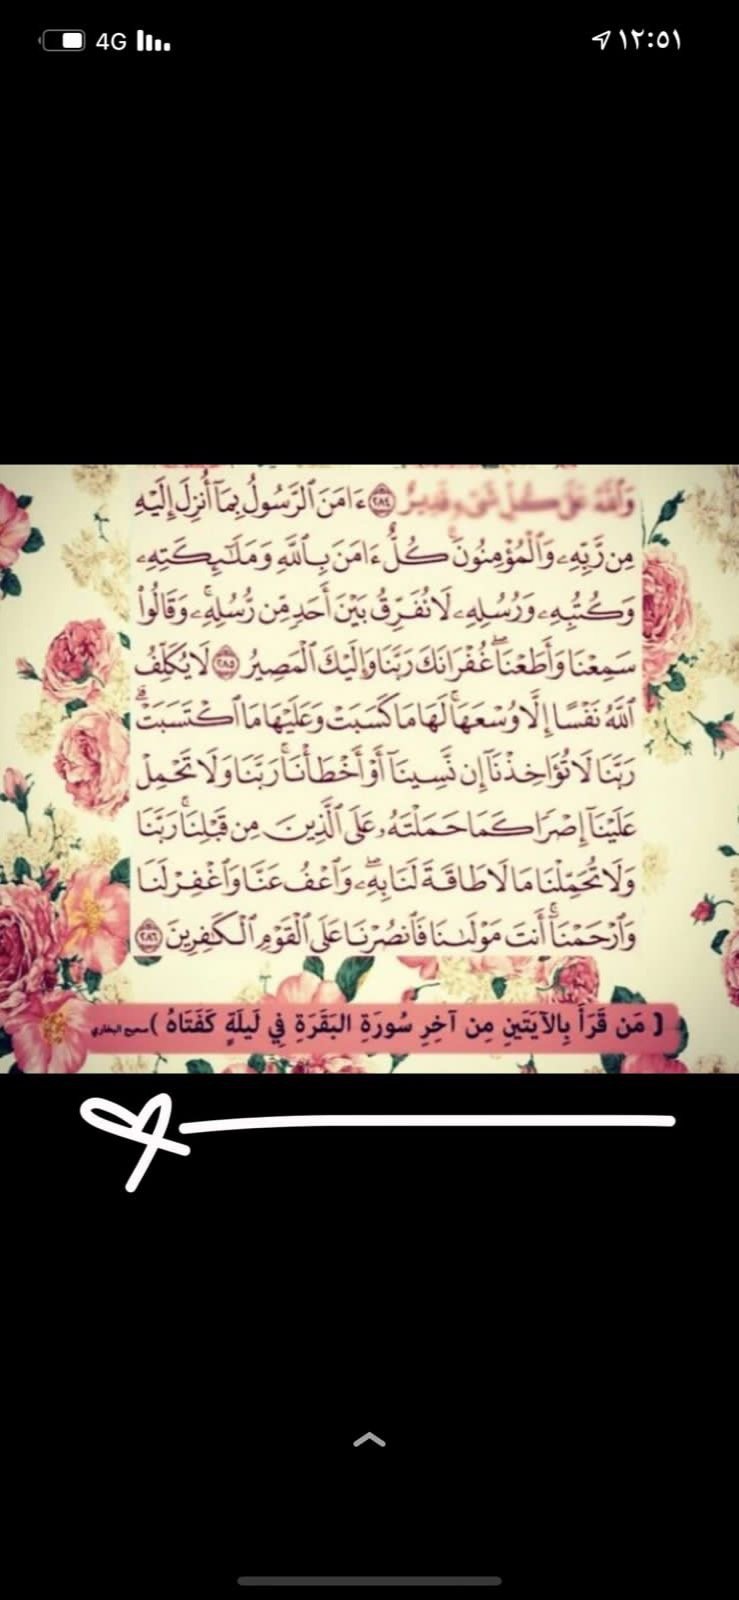 4G ١٢:٥١
وَٱللَّهُ عَلَىٰ كُلِّ شَىْءٍ قَدِيرٌ ٢٨٤ ءَامَنَ ٱلرَّسُولُ بِمَآ أُنزِلَ إِلَيْهِ
مِن رَّبِّهِۦ وَٱلْمُؤْمِنُونَ ۚ كُلٌّ ءَامَنَ بِٱللَّهِ وَمَلَـٰٓئِكَتِهِۦ
وَكُتُبِهِۦ وَرُسُلِهِۦ لَا نُفَرِّقُ بَيْنَ أَحَدٍ مِّن رُّسُلِهِۦ ۚ وَقَالُوا۟
سَمِعْنَا وَأَطَعْنَا ۖ غُفْرَانَكَ رَبَّنَا وَإِلَيْكَ ٱلْمَصِيرُ ٢٨٥ لَا يُكَلِّفُ
ٱللَّهُ نَفْسًا إِلَّا وُسْعَهَا ۚ لَهَا مَا كَسَبَتْ وَعَلَيْهَا مَا ٱكْتَسَبَتْ ۗ
رَبَّنَا لَا تُؤَاخِذْنَآ إِن نَّسِينَآ أَوْ أَخْطَأْنَا ۚ رَبَّنَا وَلَا تَحْمِلْ
عَلَيْنَآ إِصْرًا كَمَا حَمَلْتَهُۥ عَلَى ٱلَّذِينَ مِن قَبْلِنَا ۚ رَبَّنَا
وَلَا تُحَمِّلْنَا مَا لَا طَاقَةَ لَنَا بِهِۦ ۖ وَٱعْفُ عَنَّا وَٱغْفِرْ لَنَا
وَٱرْحَمْنَآ ۚ أَنتَ مَوْلَىٰنَا فَٱنصُرْنَا عَلَى ٱلْقَوْمِ ٱلْكَـٰفِرِينَ ٢٨٦
( مَن قَرَأَ بِالآيَتَينِ مِن آخِرِ سُورَةِ البَقَرَةِ فِي لَيلَةٍ كَفَتَاهُ ) صحيح البخاري